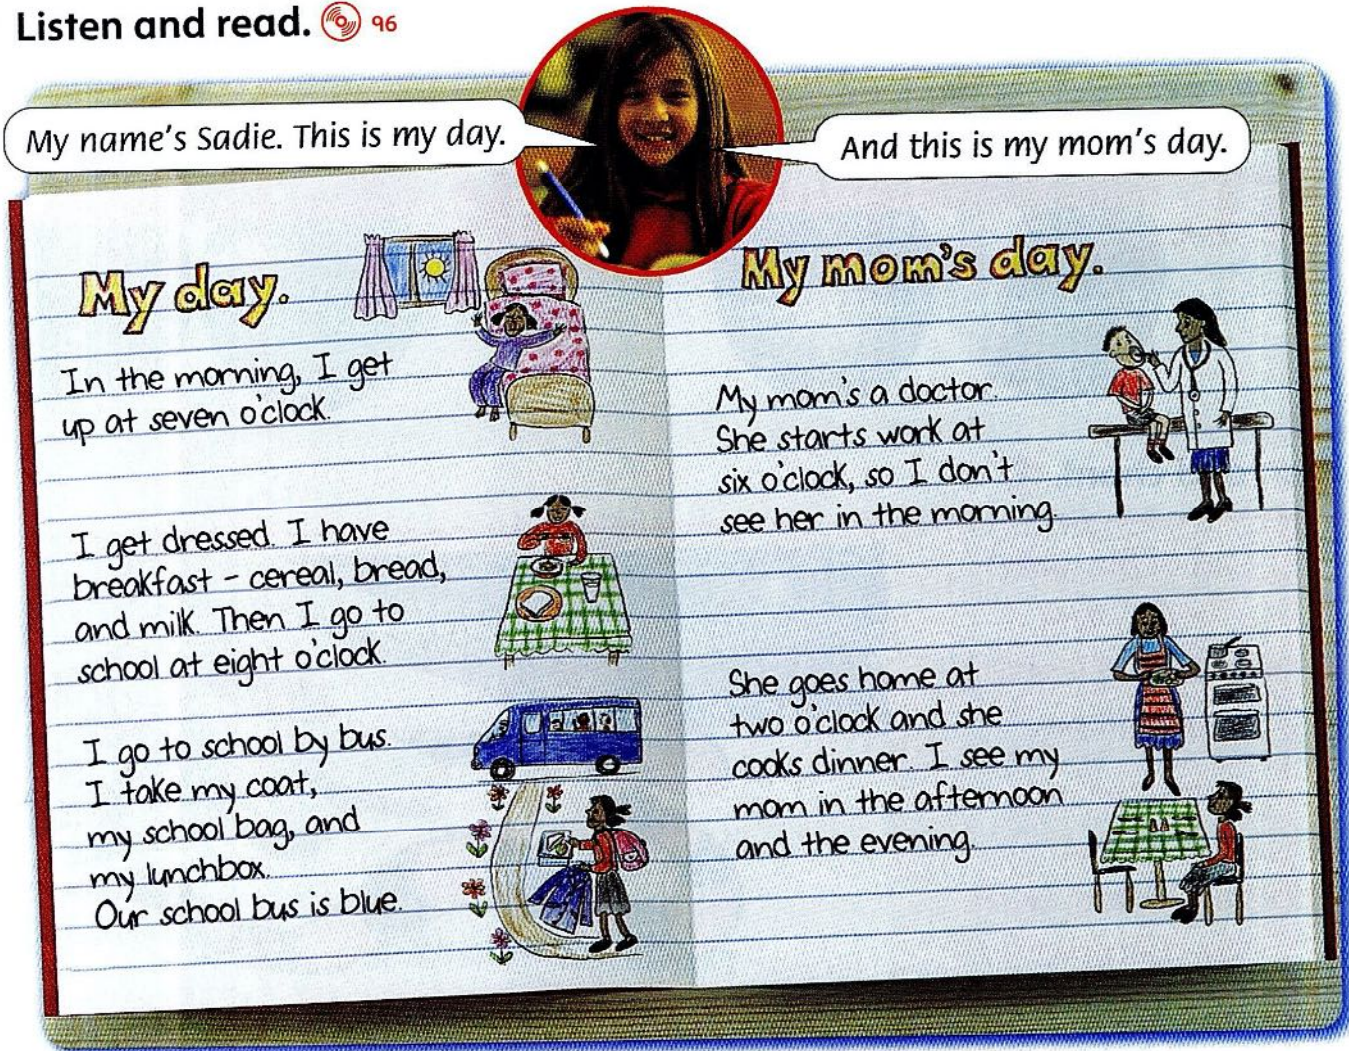 Listen and read. 96
My name's Sadie. This is my day.
And this is my mom's day.
My day.
In the morning, I get
up at seven o'clock.
I get dressed. I have
breakfast – cereal, bread,
and milk. Then I go to
school at eight o'clock.
I go to school by bus.
I take my coat,
my school bag, and
my lunchbox.
Our school bus is blue.
My mom's day.
My mom's a doctor.
She starts work at
six o'clock, so I don't
see her in the morning.
She goes home at
two o'clock and she
cooks dinner. I see my
mom in the afternoon
and the evening.